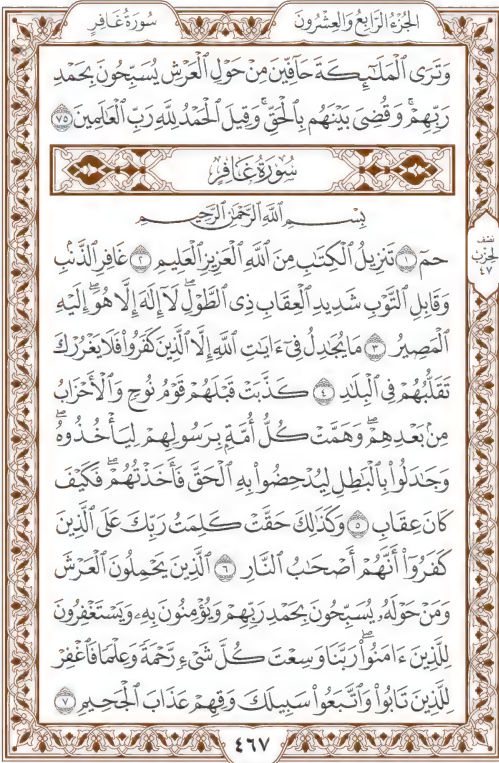 سُورَةُ غَافِرٍ
الجُزْءُ الرَّابِعُ وَالعِشْرُونَ
وَتَرَى ٱلْمَلَٰٓئِكَةَ حَآفِّينَ مِنْ حَوْلِ ٱلْعَرْشِ يُسَبِّحُونَ بِحَمْدِ
رَبِّهِمْۖ وَقُضِيَ بَيْنَهُم بِٱلْحَقِّۚ وَقِيلَ ٱلْحَمْدُ لِلَّهِ رَبِّ ٱلْعَٰلَمِينَ ٧٥
سُورَةُ غَافِرٍ
بِسْمِ ٱللَّهِ ٱلرَّحْمَٰنِ ٱلرَّحِيمِ
حمٓ ١ تَنزِيلُ ٱلْكِتَٰبِ مِنَ ٱللَّهِ ٱلْعَزِيزِ ٱلْعَلِيمِ ٢ غَافِرِ ٱلذَّنۢبِ
وَقَابِلِ ٱلتَّوْبِ شَدِيدِ ٱلْعِقَابِ ذِي ٱلطَّوْلِۖ لَآ إِلَٰهَ إِلَّا هُوَۖ إِلَيْهِ
ٱلْمَصِيرُ ٣ مَا يُجَٰدِلُ فِيٓ ءَايَٰتِ ٱللَّهِ إِلَّا ٱلَّذِينَ كَفَرُواْ فَلَا يَغْرُرْكَ
تَقَلُّبُهُمْ فِي ٱلْبِلَٰدِ ٤ كَذَّبَتْ قَبْلَهُمْ قَوْمُ نُوحٍ وَٱلْأَحْزَابُ
مِنۢ بَعْدِهِمْۖ وَهَمَّتْ كُلُّ أُمَّةٍۭ بِرَسُولِهِمْ لِيَأْخُذُوهُۖ
وَجَٰدَلُواْ بِٱلْبَٰطِلِ لِيُدْحِضُواْ بِهِ ٱلْحَقَّ فَأَخَذْتُهُمْۖ فَكَيْفَ
كَانَ عِقَابِ ٥ وَكَذَٰلِكَ حَقَّتْ كَلِمَتُ رَبِّكَ عَلَى ٱلَّذِينَ
كَفَرُوٓاْ أَنَّهُمْ أَصْحَٰبُ ٱلنَّارِ ٦ ٱلَّذِينَ يَحْمِلُونَ ٱلْعَرْشَ
وَمَنْ حَوْلَهُۥ يُسَبِّحُونَ بِحَمْدِ رَبِّهِمْ وَيُؤْمِنُونَ بِهِۦ وَيَسْتَغْفِرُونَ
لِلَّذِينَ ءَامَنُواْۖ رَبَّنَا وَسِعْتَ كُلَّ شَيْءٍ رَّحْمَةً وَعِلْمًا فَٱغْفِرْ
لِلَّذِينَ تَابُواْ وَٱتَّبَعُواْ سَبِيلَكَ وَقِهِمْ عَذَابَ ٱلْجَحِيمِ ٧
نصف
الحزب
٤٧
٤٦٧